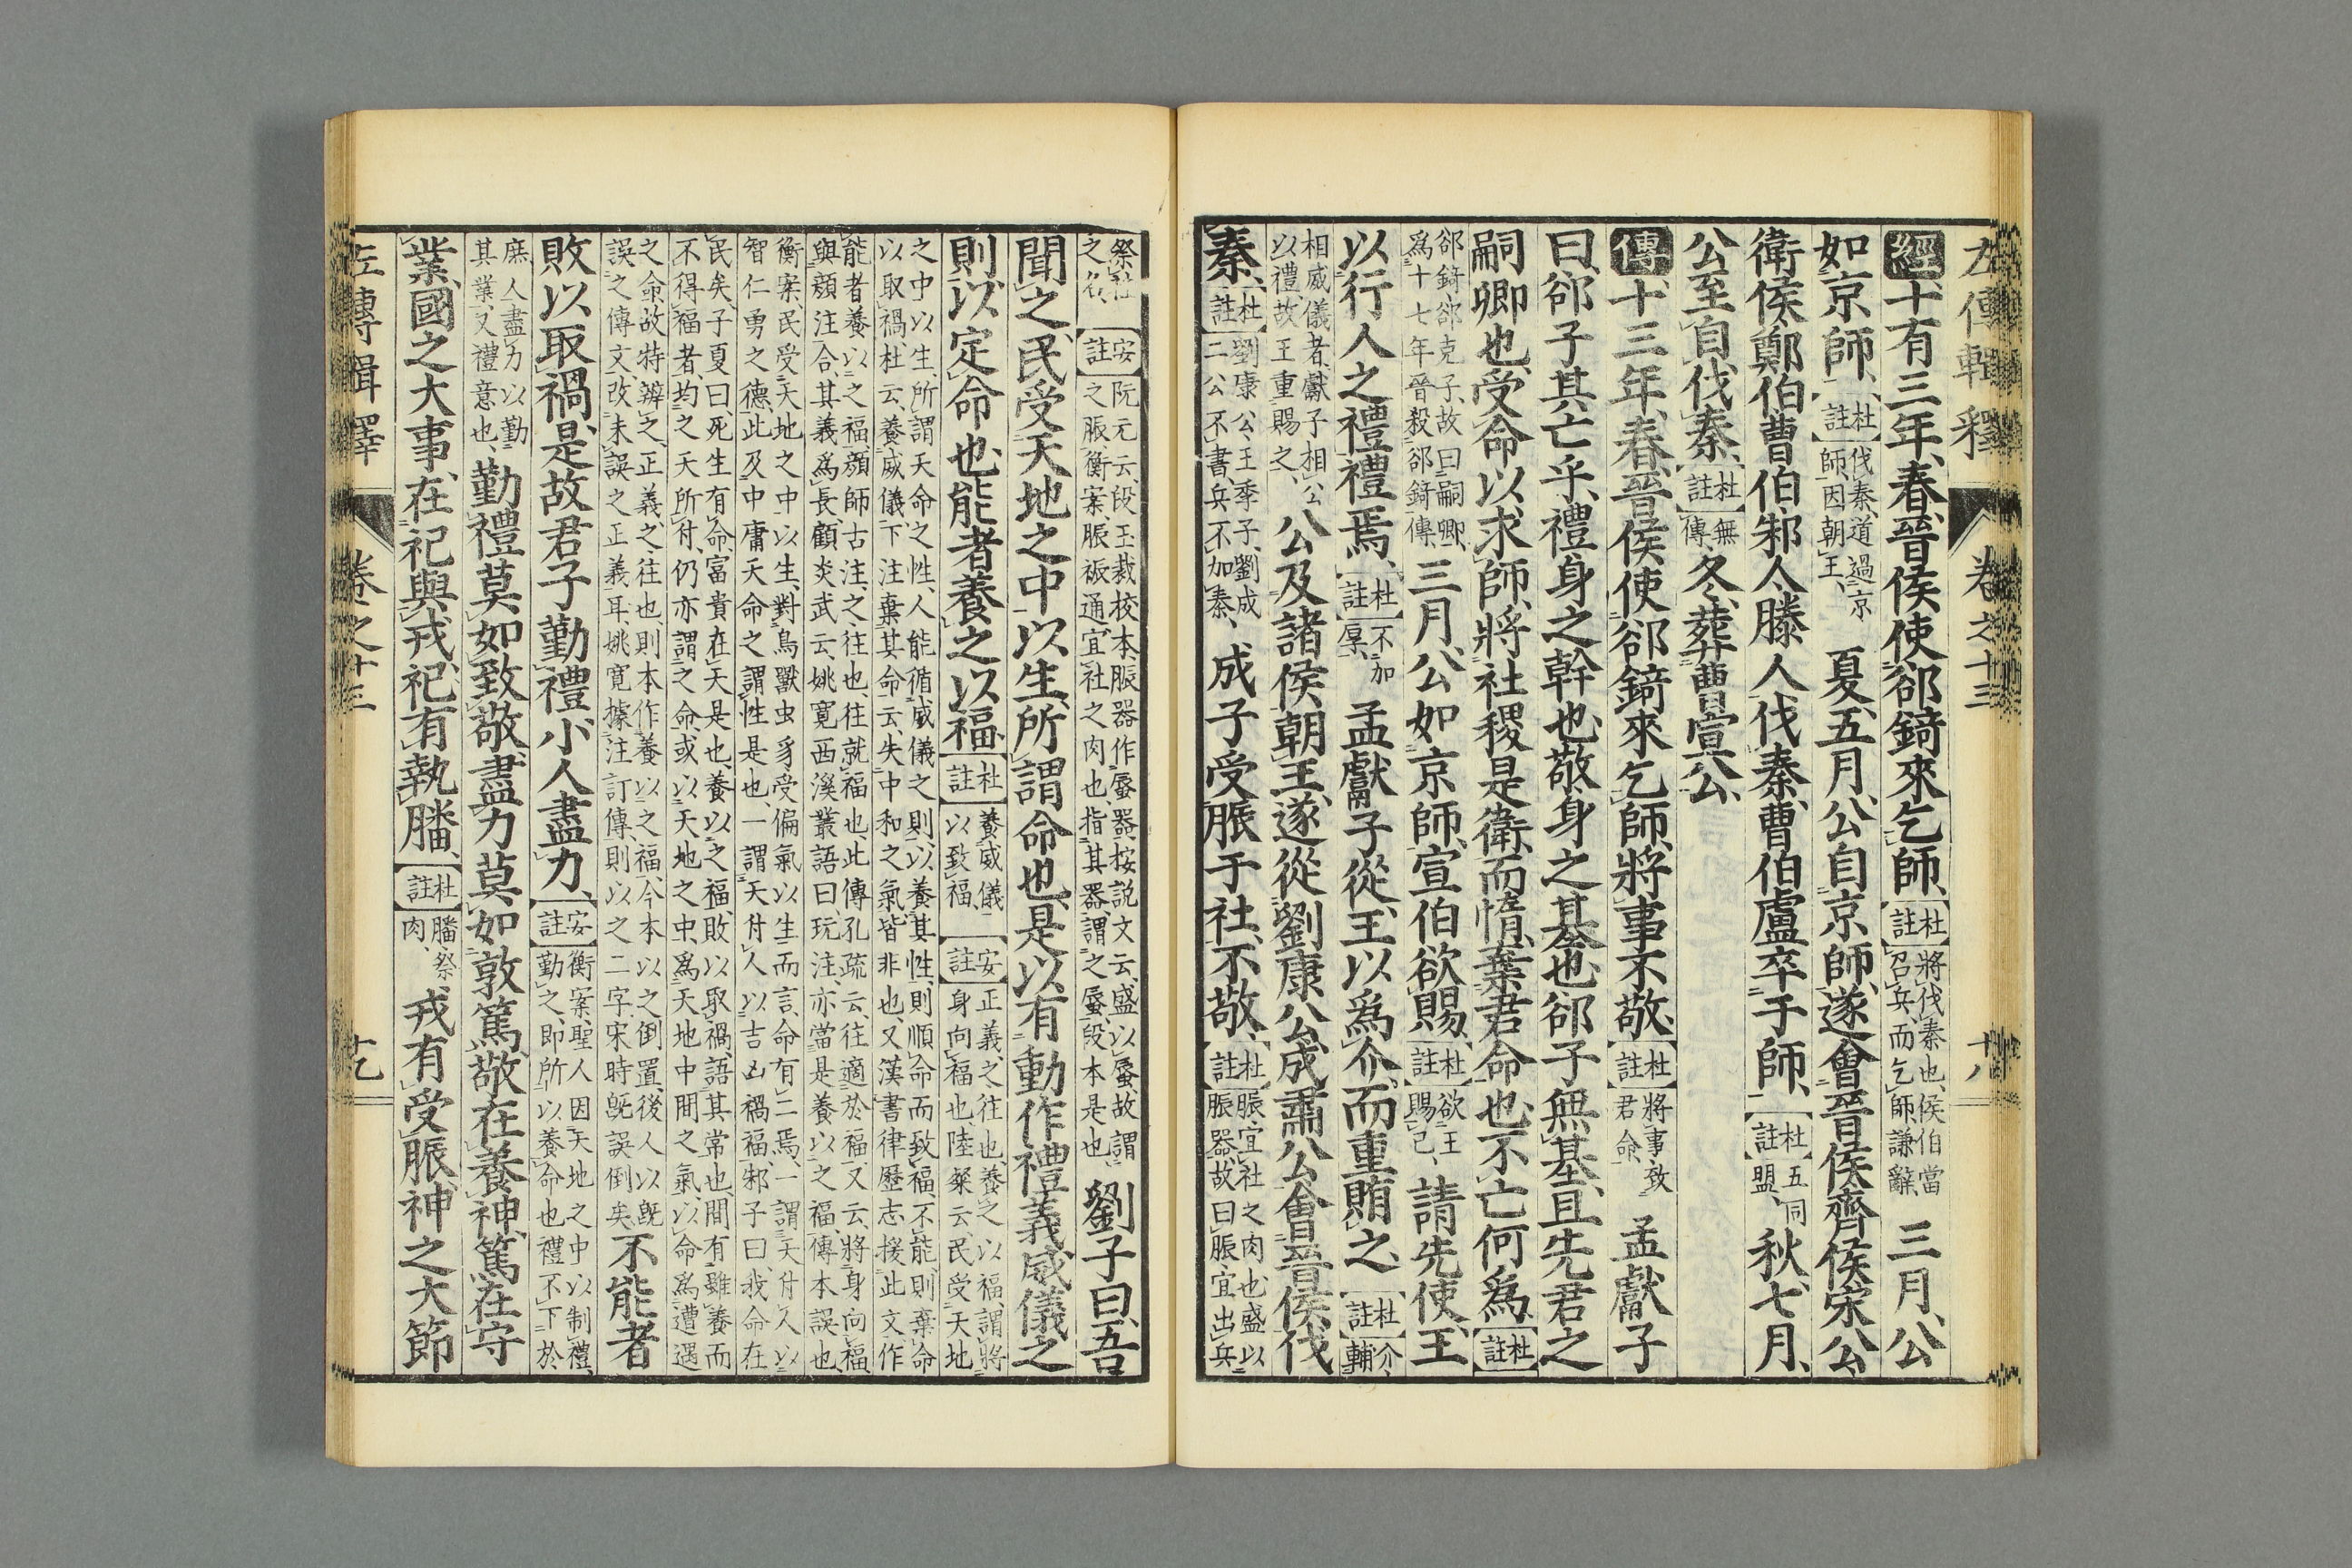 左傳輯釋 卷之十三 十八
經十有三年、春、晉侯使郤錡來乞師、杜註將伐秦也、侯伯當召兵、而乞師、謙辭、三月、公
如京師、杜註伐秦、道過京師、因朝王、夏、五月、公自京師、遂會晉侯齊侯宋公
衛侯鄭伯曹伯邾人滕人伐秦、曹伯盧卒于師、杜註五同盟、秋、七月、
公至自伐秦、杜註無傳、冬、葬曹宣公、
傳十三年、春、晉侯使郤錡來乞師、將事不敬、杜註將事、致君命、孟獻子
曰、郤子其亡乎、禮身之幹也、敬身之基也、郤子無基、且先君之
嗣卿也、受命以求師、將社稷是衛、而惰、棄君命也、不亡何爲、杜註
郤錡郤克子、故曰嗣卿、爲十七年晉殺郤錡傳、三月、公如京師、宣伯欲賜、杜註欲王賜己、請先使、王
以行人之禮禮焉、杜註不加厚、孟獻子從、王以爲介、而重賄之、杜註介、輔
相威儀者、獻子相公以禮、故王重賜之、公及諸侯朝王、遂從劉康公、成肅公、會晉侯伐
秦、杜註劉康公、王季子、劉成二公不書、兵不加秦、成子受脤于社、不敬、杜註脤、宜社之肉也、盛以脤器、故曰脤、宜出兵
祭社之名、安註阮元云、段玉裁校本、脤器作蜃器、按說文云、盛以蜃、故謂之脤、衡案、脤祳通、宜社之肉也、指其器、謂之蜃、段本是也、劉子曰、吾
聞之、民受天地之中以生、所謂命也、是以有動作禮義威儀之
則、以定命也、能者養之以福、杜註養威儀以致福、安註正義、之往也、養之以福、謂將身向福也、陸粲云、民受天地
之中以生、所謂天命之性、人能循威儀之則、以養其性、則順命而致福、不能、則棄命以取禍、杜云、養威儀、下注棄其命云、失中和之氣、皆非也、又漢書律歷志、援此文作
能者養以之福、顏師古注、之往也、往就福也、此傳孔疏云、往適於福、又云、將身向福、與顏注合、其義爲長、顧炎武云、姚寬西溪叢語曰、玩注、亦當是養以之福、傳本誤也、
衡案、民受天地之中以生、對鳥獸虫豸受偏氣以生而言、命有二焉、一謂天付人以智仁勇之德、此及中庸天命之謂性是也、一謂天付人以吉凶禍福、邾子曰、我命在
民矣、子夏曰、死生有命、富貴在天是也、養以之福、敗以取禍、語其常也、間有雖養而不得福者、均之天所付、仍亦謂之命、或以天地之中、爲天地中間之氣、以命爲遭遇
之命、故特辨之、正義、之往也、則本作養以之福、今本以之倒置、後人以旣誤之傳文、改未誤之正義耳、姚寬據注訂傳、則以之二字、宋時旣誤倒矣、不能者
敗以取禍、是故君子勤禮、小人盡力、安註衡案、聖人因天地之中以制禮、勤之、即所以養命也、禮不下於
庶人、盡力以勤其業、又禮意也、勤禮莫如致敬、盡力莫如敦篤、敬在養神、篤在守
業、國之大事、在祀與戎、祀有執膰、杜註膰、祭肉、戎有受脤、神之大節
左傳輯釋 卷之十三 十九